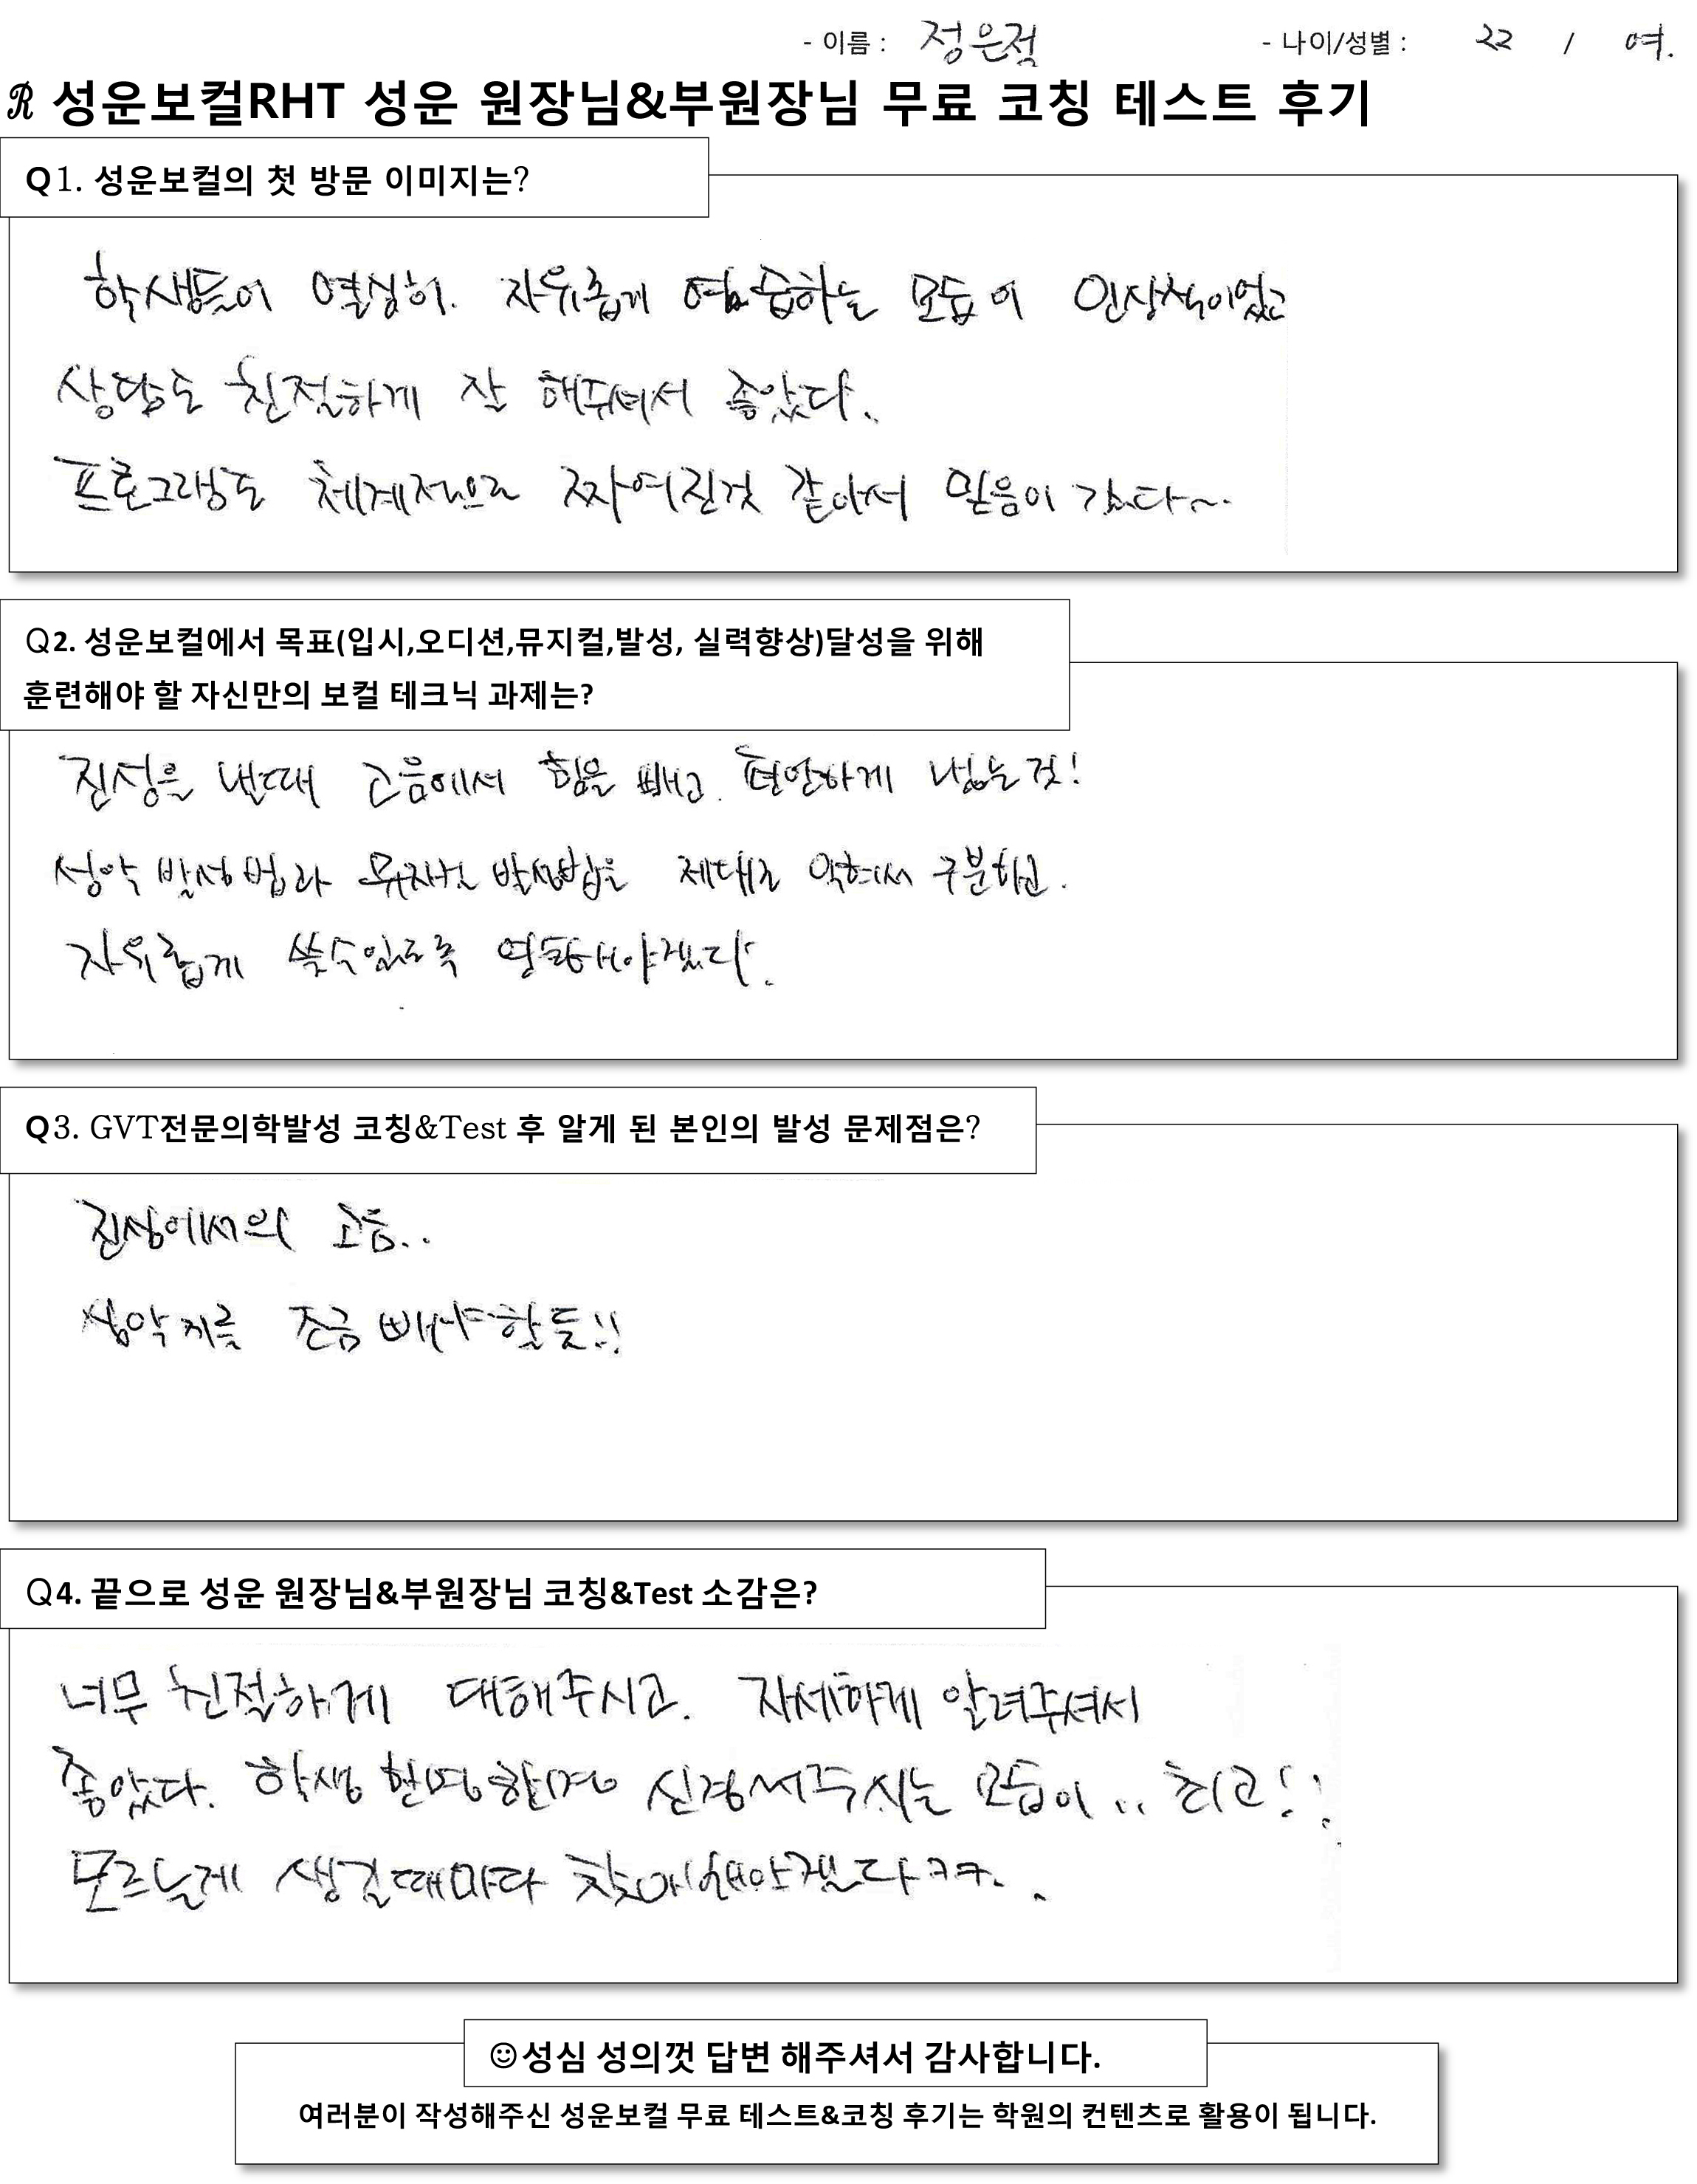 - 이름 : 정은적 - 나이/성별 : 22 / 여.
R 성운보컬RHT 성운 원장님&부원장님 무료 코칭 테스트 후기
Q1. 성운보컬의 첫 방문 이미지는?
학생들이 열심히. 자유롭게 연습하는 모습이 인상적이었고
상담도 친절하게 잘 해주셔서 좋았다.
프로그램도 체계적으로 짜여진것 같아서 믿음이 갔다~..
Q2. 성운보컬에서 목표(입시,오디션,뮤지컬,발성, 실력향상)달성을 위해
훈련해야 할 자신만의 보컬 테크닉 과제는?
진성을 낼때 고음에서 힘을 빼고. 편안하게 내는것!
성악 발성법과 뮤지컬 발성법을 제대로 익혀서 구분하고.
자유롭게 쓸수있도록 연습해야겠다.
Q3. GVT전문의학발성 코칭&Test 후 알게 된 본인의 발성 문제점은?
진성에서의 고음..
성악 조금 빼야할듯!!
Q4. 끝으로 성운 원장님&부원장님 코칭&Test 소감은?
너무 친절하게 대해주시고. 자세하게 알려주셔서
좋았다. 학생 한명한명 신경써주시는 모습이.. 최고!!
모르는게 생길때마다 찾아봬야겠다ㅋㅋ..
☺성심 성의껏 답변 해주셔서 감사합니다.
여러분이 작성해주신 성운보컬 무료 테스트&코칭 후기는 학원의 컨텐츠로 활용이 됩니다.